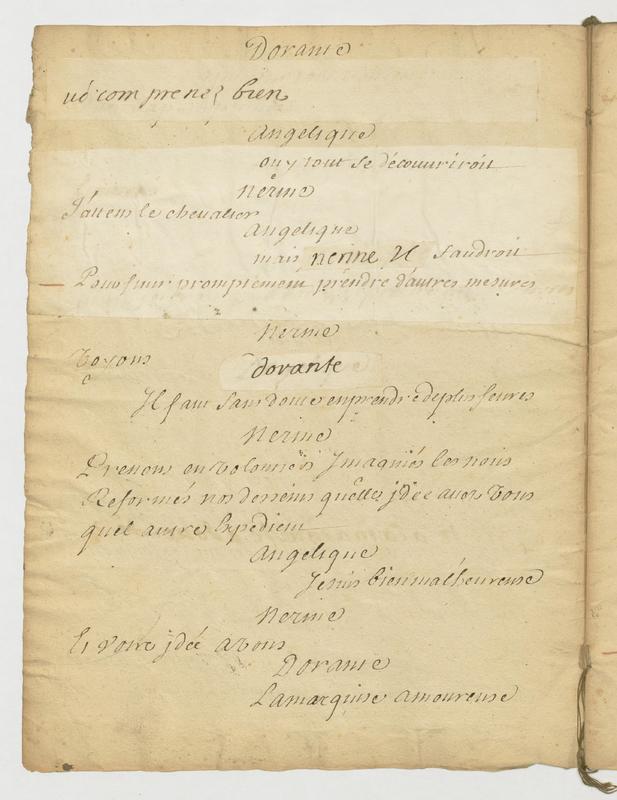 Dorante
vo comprenez bien
angelique
ouy tout se découvriroit
nerine
J'attens le chevalier
angelique
mais nerine Il faudroit
Pour finir promptement prendre d'autres mesures
Nerine
Voyons
dorante
Il faut sans doute en prendre de plus seures
Nerine
Prenons en volontiers Imaginés les nous
Reformés nos desseins quelle jdée avez vous
quel autre Expedient
angelique
Je suis bien malheureuse
Nerine
Et votre jdée a vous
Dorante
La marquise amoureuse